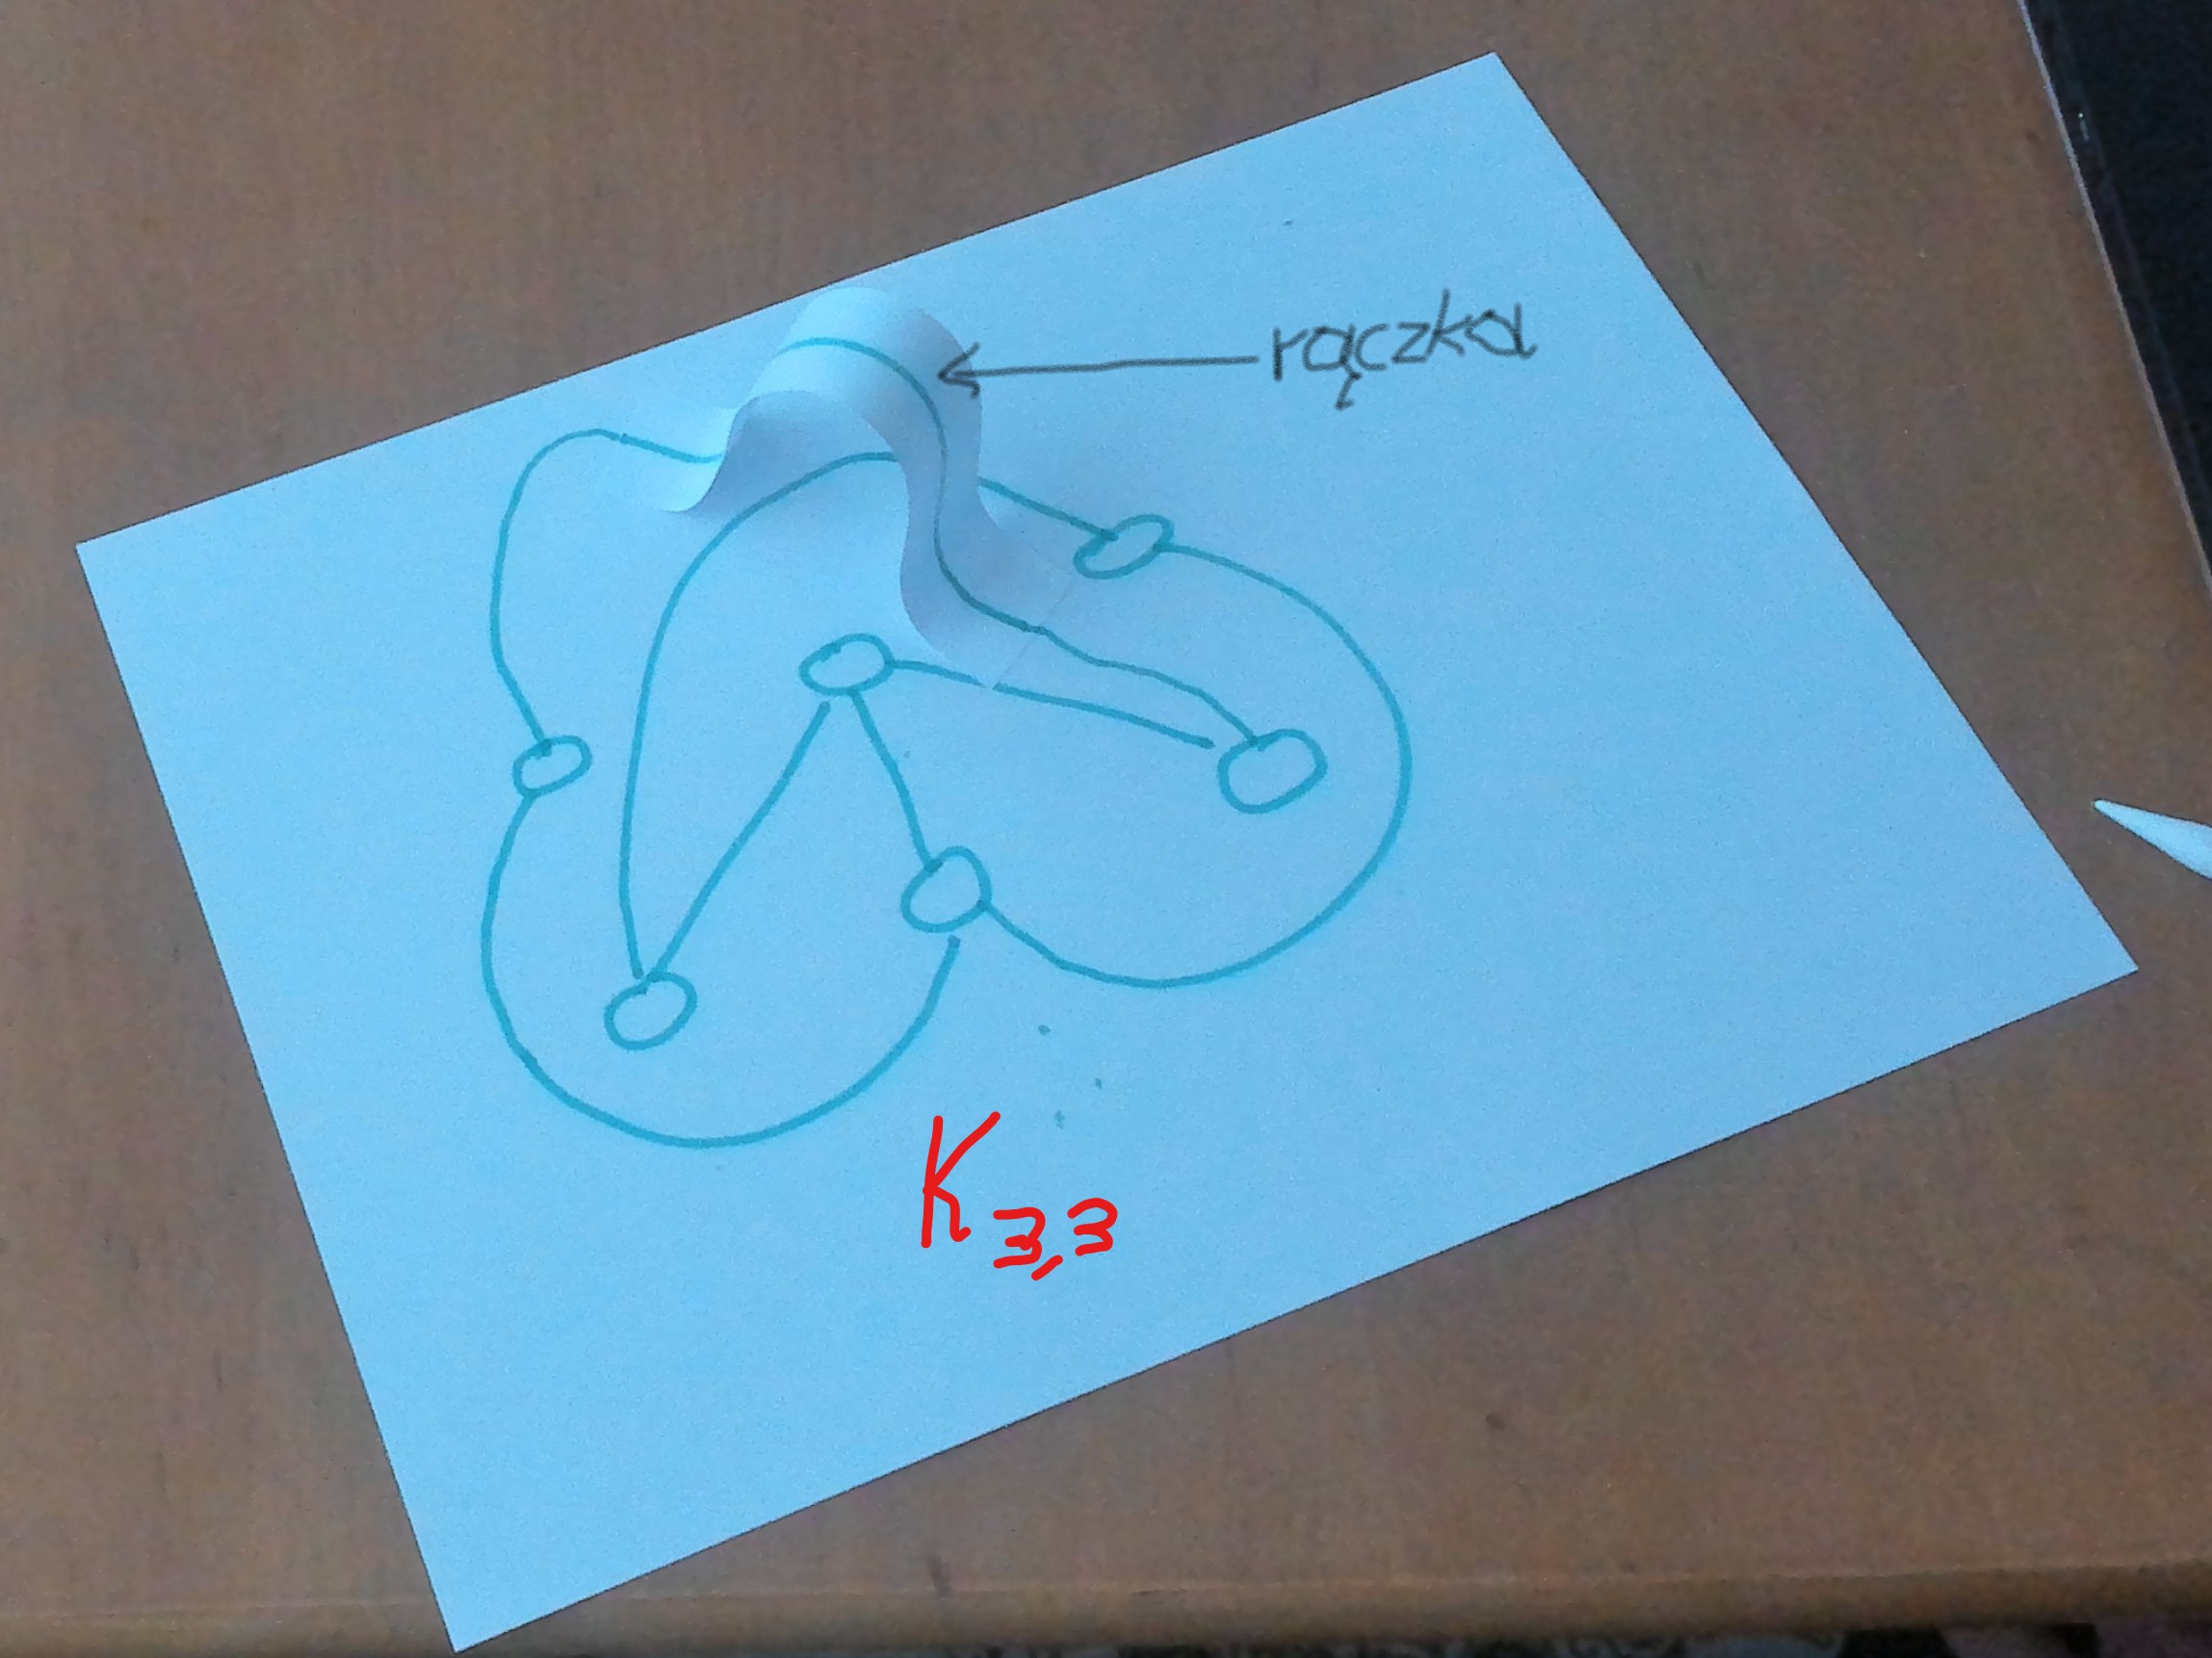 rączka
K3,3